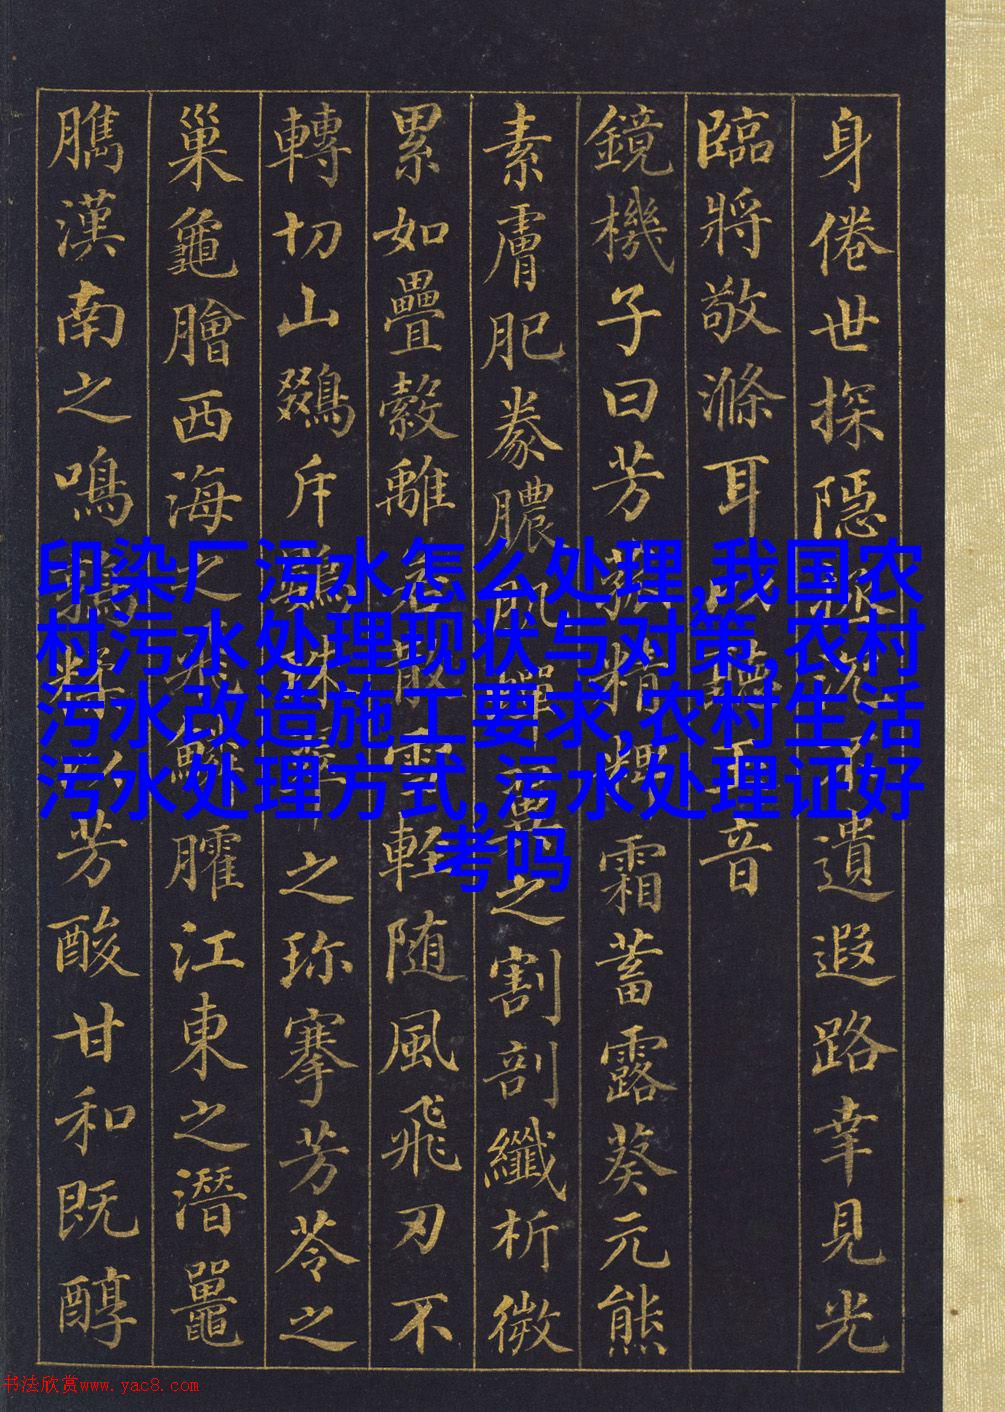 身倦世探隱拯沈不遺遐路幸見光
臨將敬滌耳以聽玉音
鏡機子曰芳菰精粺霜蓄露葵元熊
素膚肥豢膿肌蟬翼之割剖纖析微
累如疊縠離若散雪軽随風飛刃不
轉切山鵽斥鷃珠翠之珎搴芳苓之
巢龜膾西海之飛鱗臛江東之潛鼉
臇漢南之鳴鶉糅以芳酸甘和既醇
印染厂污水怎么处理,我国农
村污水处理现状与对策,农村
污水改造施工要求,农村生活
污水处理方式,污水处理证好
考吗
书法欣赏www.yac8.com